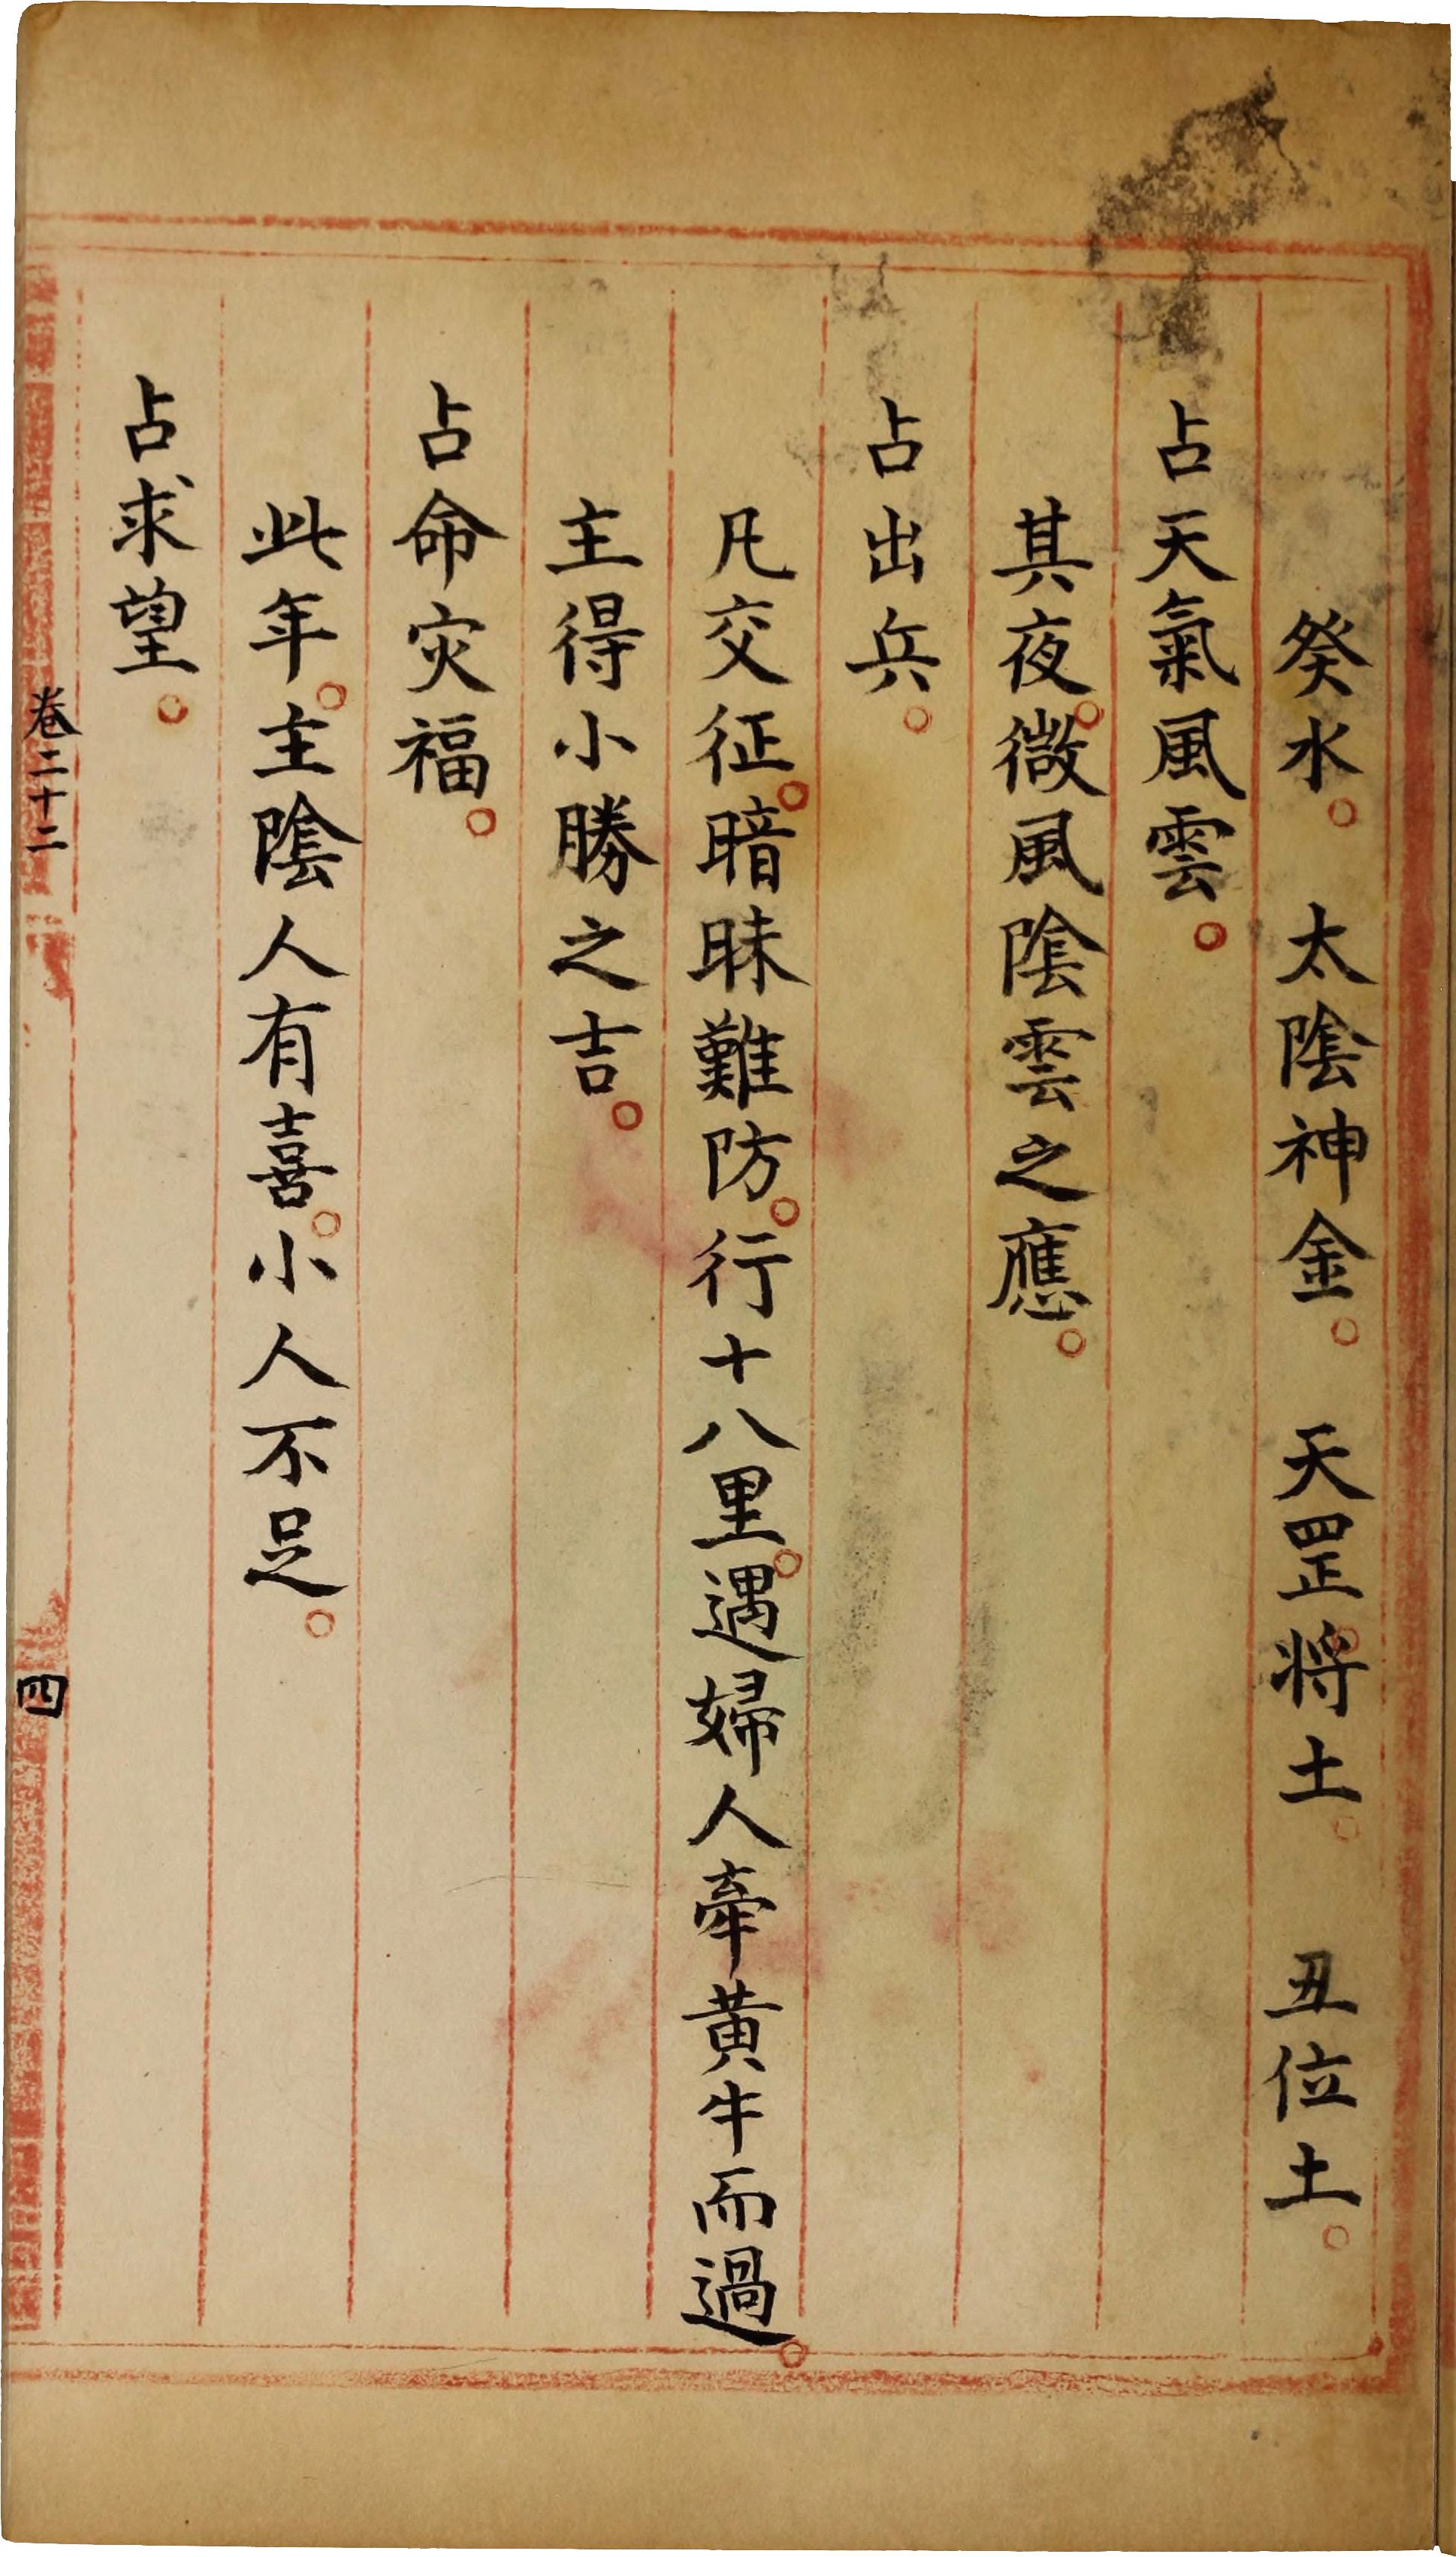 癸水。　太陰神金。　天罡将土。　丑位土。
占天氣風雲。
其夜。微風陰雲之應。
占出兵。
凡交征。暗昧難防。行十八里。遇婦人牽黃牛而過。
主得小勝之吉。
占命灾福。
此年。主陰人有喜。小人不足。
占求望。
卷二十二
四